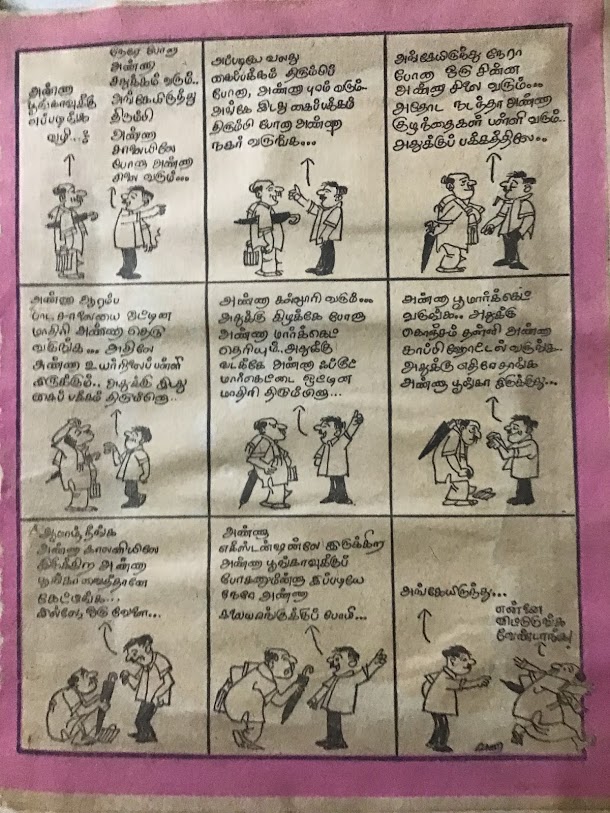 அண்ணா
பூங்காவுக்கு
எப்படிங்க
வழி...?
நேரே போனா
அண்ணா
சதுக்கம் வரும்..
அங்கேயிருந்து
திரும்பி
அண்ணா
சாலையிலே
போனா அண்ணா
சிலை வரும்...
அப்படியே வலது
கைப்பக்கம் திரும்பி
போனா, அண்ணா புரம் வரும்..
அங்கே இடது கைப்பக்கம்
திரும்பி போனா அண்ணா
நகர் வருங்க...
அங்கேயிருந்து நேரா
போனா ஒரு சின்ன
அண்ணா சிலை வரும்...
அதோட நடந்தா அண்ணா
குழந்தைகள் பள்ளி வரும்..
அதுக்குப் பக்கத்திலே..
அண்ணா ஆரம்ப
பாடசாலையை ஒட்டின
மாதிரி அண்ணா தெரு
வருங்க... அதிலே
அண்ணா உயர்நிலைப்பள்ளி
இருக்கும்.. அதுக்கு இடது
கைப் பக்கம் திரும்பினா..
அண்ணா கல்லூரி வரும்...
அதுக்கு கிழக்கே போனா
அண்ணா மார்க்கெட்
தெரியும்.. அதுக்கு
வடக்கே அண்ணா ஃப்ரூட்
மார்கெட்டை ஒட்டின
மாதிரி திரும்பினா...
அண்ணா பூ மார்க்கெட்
வருங்க.. அதுக்கு
கொஞ்சம் தள்ளி அண்ணா
காப்பி ஹோட்டல் வருங்க..
அதுக்கு எதிரேதாங்க
அண்ணா பூங்கா இருக்குது...
ஆமாம், நீங்க
அண்ணா காலனியிலே
இருக்கிற அண்ணா
பூங்காவைத்தானே
கேட்டீங்க...
இல்லே, ஒரு வேளை...
அண்ணா
எக்ஸ்டன்ஷன்லே இருக்கிற
அண்ணா பூங்காவுக்குப்
போகணும்னா இப்படியே
நேரே அண்ணா
கலையரங்குக்குப் போயி...
அங்கேயிருந்து...
என்னை
விட்டுடுங்க
வேண்டாங்க!